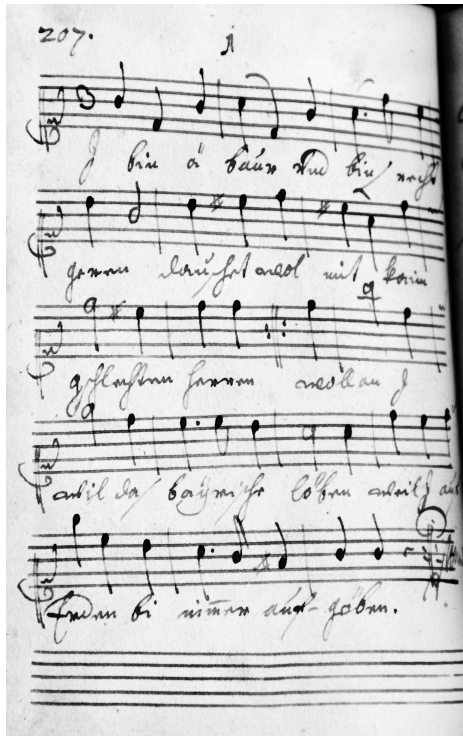 207.
1
J bin ä baur und bin recht
geren dauschet wol mit kaim
gschlechten herren wollan J
wil das bayrische löben weil J auf
Erden bi nimmer auf-göben.